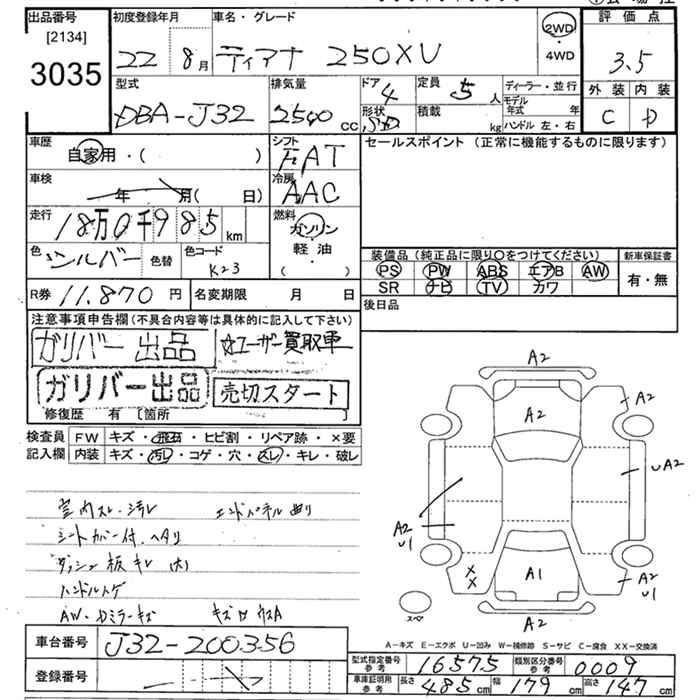 出品番号 初度登録年月 車名・グレード 評価点
[2134] 22 8月 ティアナ 250XV 2WD 3.5
3035 ・4WD
型式 排気量 ドア 4 定員 5人 ディーラー・並行 外装 内装
DBA-J32 2500cc 形状 SD 積載 kg モデル年式 年 C D
ハンドル 左・右
車歴 自家用・( ) シフト FAT セールスポイント (正常に機能するものに限ります)
車検 年 月( 日) 冷房 AAC
走行 18万0千985km 燃料 ガソリン
色 シルバー 色替 色コード K23 ・軽油・( )
装備品(純正品に限り○をつけてください) 新車保証書
PS PW ABS エアB AW 有・無
SR ナビ TV カワ
R券 11.870円 名変期限 月 日 後日品
注意事項申告欄(不具合内容等は具体的に記入して下さい)
ガリバー出品 ☆ユーザー買取車
ガリバー出品 売切スタート
修復歴 有 [箇所
検査員 FW キズ・飛石・ヒビ割・リペア跡・×要
記入欄 内装 キズ・汚レ・コゲ・穴・スレ・キレ・破レ
室内スレ・汚レ エンドパネル曲り
シートカバー付・ヘタリ
ダッシュ板キレ(大)
ハンドルハゲ
AW・Dミラーキズ
A2
A2
A2
UA2
A2
U1
A1
XX
A2
U1
スペア
A2
A-キズ E-エクボ U-凹み W-補修跡 S-サビ C-腐食 XX-交換済
車台番号 J32-200356
型式指定番号 参考 16575 類別区分番号 参考 0009
登録番号
車庫証明用 参考 長さ 485cm 幅 179cm 高さ 147cm